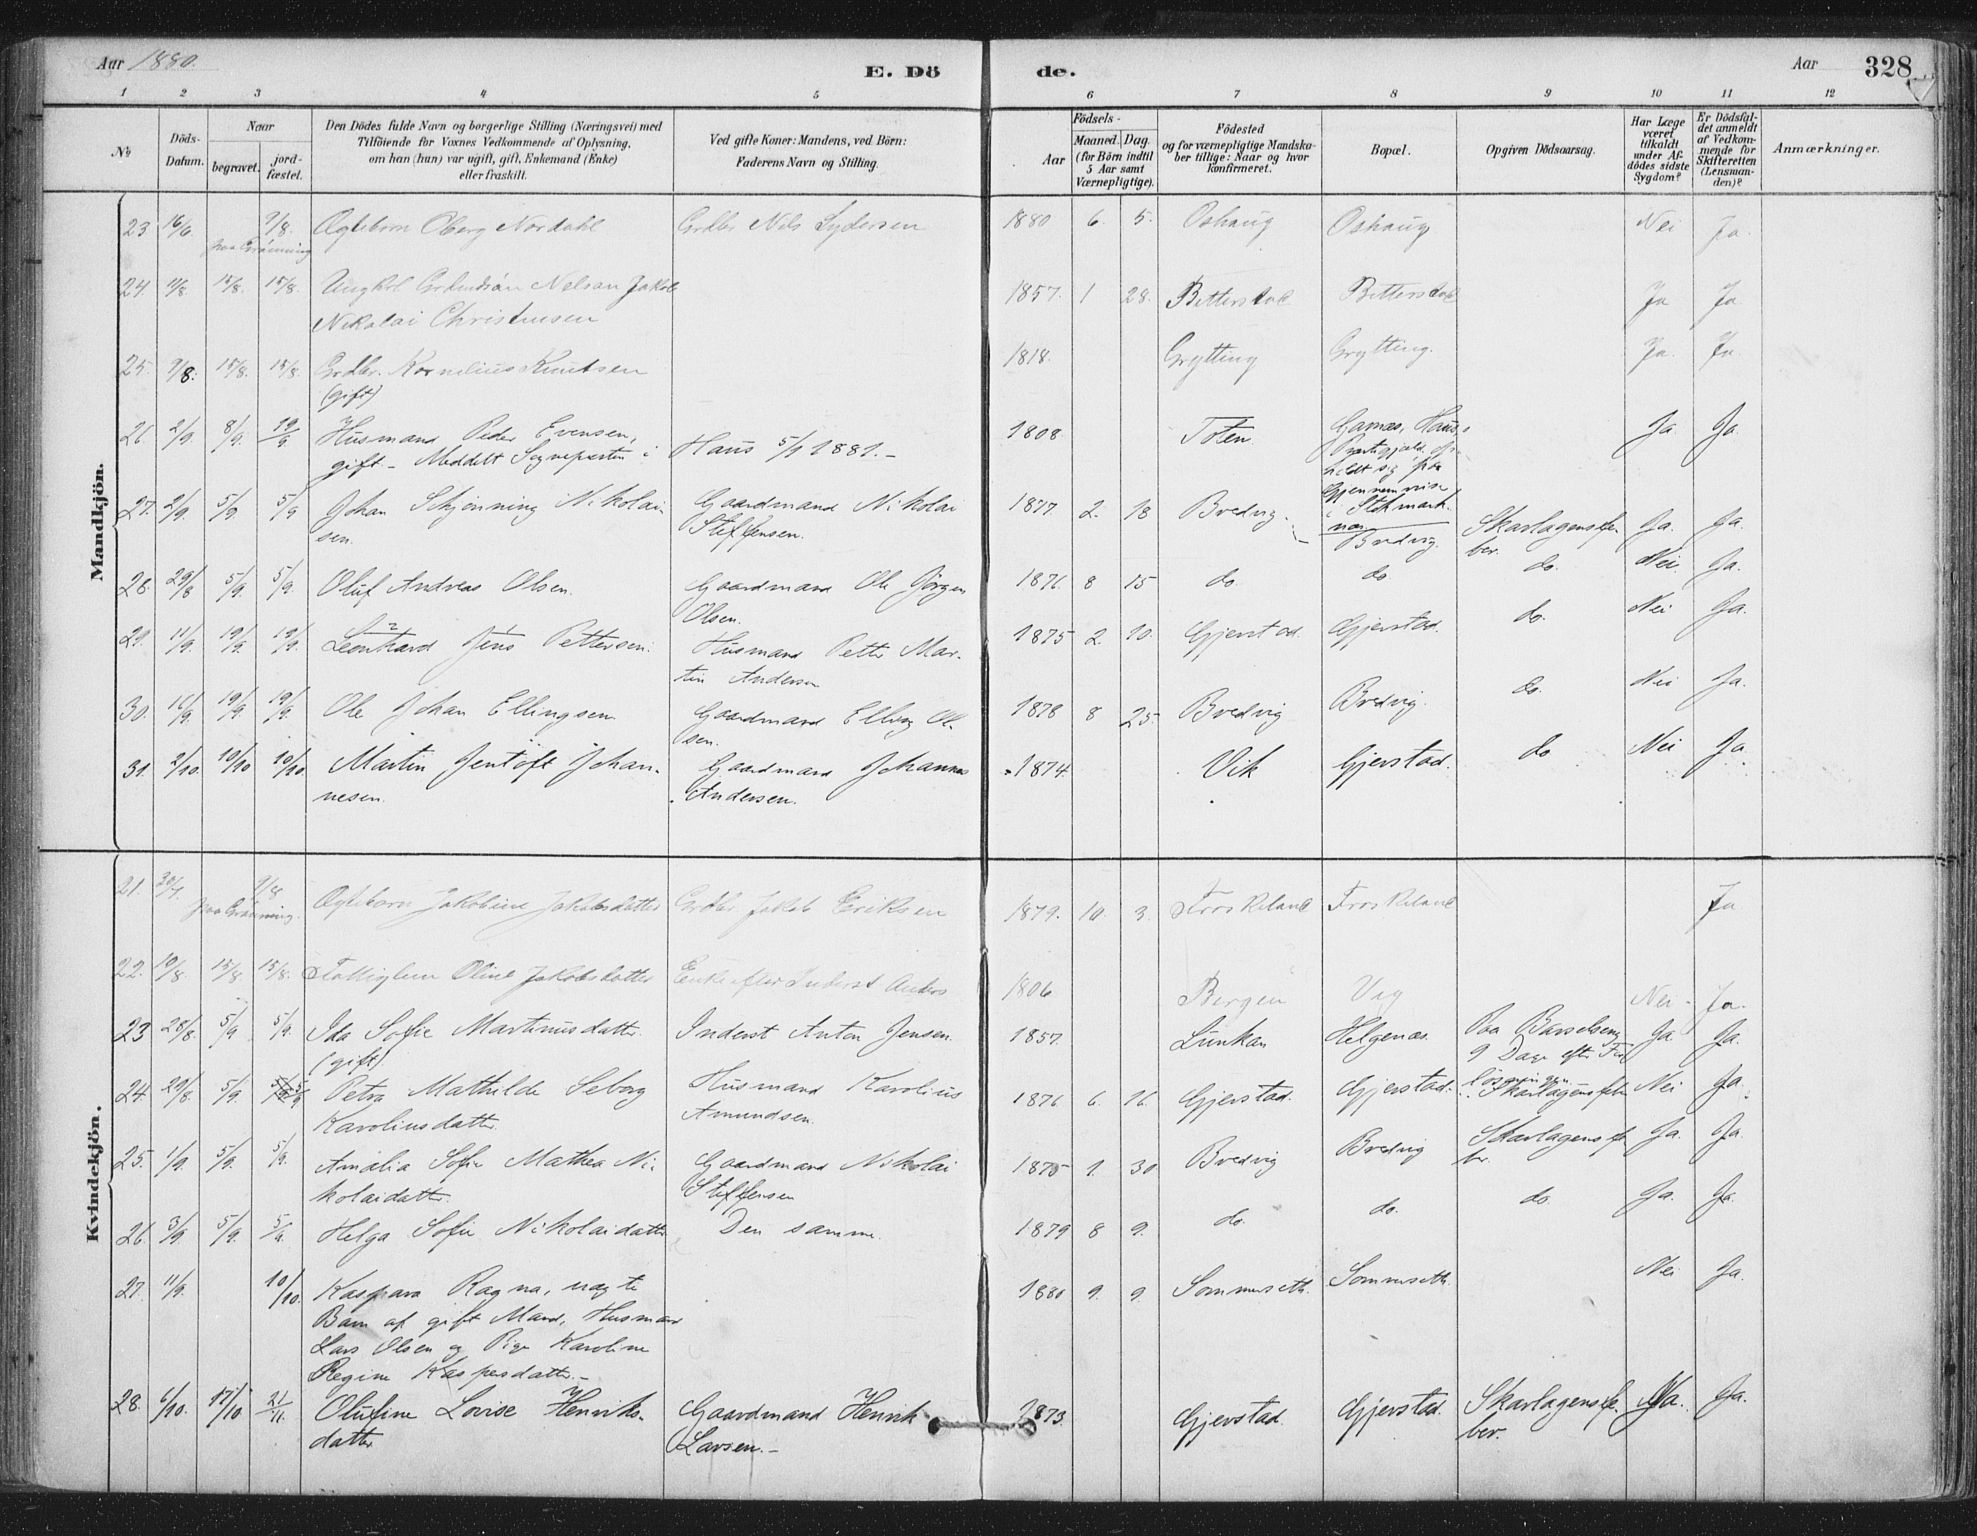 Aar 1880.
E. Dö
de.
Aar
328
1 2 3 4 5 6 7 8 9 10 11 12
№
Döds-
Datum.
Naar
begravet.
jord-
fæstet.
Den Dödes fulde Navn og borgerlige Stilling (Næringsvei) med
Tilföiende for Voxnes Vedkommende af Oplysning,
om han (hun) var ugift, gift, Enkemand (Enke)
eller fraskilt.
Ved gifte Koner: Mandens, ved Börn:
Faderens Navn og Stilling.
Födsels-
Aar
Maaned.
Dag.
(for Börn indtil
5 Aar samt
Værnepligtige).
Födested
og for værnepligtige Mandska-
ber tillige: Naar og hvor
konfirmeret.
Bopæl.
Opgiven Dödsaarsag.
Har Læge
været
tilkaldt
under Af-
dödes sidste
Sygdom?
Er Dödsfal-
det anmeldt
af Vedkom-
mende for
Skifteretten
(Lensman-
den)?
Anmærkninger.
Mandkjön.
23 16/6. 9/8. Ægteborn Oberg Nordahl Grdbr Nils Sydersen 1880 6. 5. Oshaug Oshaug Nei Ja.
paa Grönning
24. 15/8. 15/8. Ungkrl Nelson Jakob 1857. 1 28. Ja Ja
Nikolai Christensen
25. 9/8. 15/8. 15/8. Grdbr. Kornelius Knutsen 1818. Grytting Grytting. Ja. Ja.
(gift)
26. 2/9. 8/9. 19/9 Husmand Peder Evensen, 1808. Toten. Garnæs, Haus, Ja. Ja.
gift. - Meddelt Sognepresten i Haus 5/1 1881. -
27. 2/9. 5/9. 5/9 Johan Schjönning Nikolai- Gaardmand Nikolai 1877. 2. 18 Bredvig. Bredvig. Skarlagensfe- Ja. Ja.
sen. Steffensen. ber.
28. 29/8 5/9. 5/9. Oluf Andreas Olsen. Gaardmand Ole Jörgen 1876. 8 15 do. do do. Nei. Ja.
Olsen.
29. 11/9. 19/9. 19/9. Leonhard Jens Pettersen. Husmand Petter Mar- 1875 2. 10. Gjerstad. Gjerstad. do. Nei Ja.
tin Andersen
30. 16/9. 19/9. 19/9. Ole Johan Ellingsen. Gaardmand Elling Ol- 1878 8 25. Bredvig Bredvig. do. Nei Ja.
sen.
31. 2/10. 10/10 10/10. Martin Jentoft Johan- Gaardmand Johannes 1874. Vik Gjerstad. do Nei Ja.
nesen. Andersen.
Kvindekjön.
21. 30/7. 9/8 Ægteborn Jakobine Jakobsdatter Grdbr Jakob Eriksen 1879. 10. 3. Froskeland Froskeland Ja
paa Grönning.
22. 10/8. 15/8 15/8. Fattiglem Oline Jakobsdatter Enke efter Inderst Anders 1806 Bergen Nei. Ja.
23 28/8. 5/9 5/9. Ida Sofie Martinusdatter. Inderst Anton Jensen. 1857. Lunkan Helgenæs. Paa Barselseng Ja Ja.
(gift) 9 Dage efter
24. 29/8. 5/9. 5/9 Petra Mathilde Seberg Husmand Karolius 1876. 6. 16. Gjerstad. Gjerstad. Skarlagensfeber Nei Ja.
Karoliusdatter. Amundsen.
25. 1/9. 5/9. 5/9. Amalia Sofie Mathea Ni- Gaardmand Nikolai 1875 1. 30 Bredvig Bredvig Skarlagensfe- Ja. Ja.
kolaidatter. Steffensen ber.
26. 3/9. 5/9. 5/9. Helga Sofie Nikolaidatter Den samme. 1879 8 9. do. do. do. Ja. Ja.
27. 11/9. 10/10. Kaspara Ragna, uægte 1880 9. 9. Sommerseth. Sommerseth. Nei Ja.
Barn af gift Mand, Husmand
Lars Olsen og Pige Karoline
Regine Kaspersdatter. -
28. 6/10. 17/10 21/11. Olufine Lovise Henriks- Gaardmand Henrik 1873. Gjerstad. Gjerstad. Skarlagensfe- Ja. Ja.
datter Larsen. - ber.